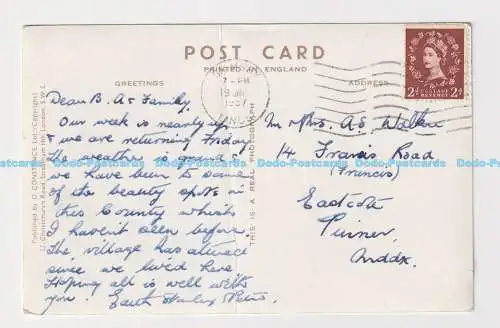 POST CARD
PRINTED IN ENGLAND
GREETINGS
ADDRESS
7 - PM
19
1957
POSTAGE
REVENUE
2d 2d
Dear B. A & Family.
Our week is nearly up
& we are returning Friday
the weather is grand &
we have been to some
of the beauty spots in
this County which
I haven't seen before.
The village has altered
since we lived here
Hoping all is well with
you.
M & Mrs. A.S. Walker
14 Francis Road
(Francis)
Eastcote
Pinner
Middx.
THIS IS A REAL PHOTOGRAPH
Published by D. CONSTANCE Ltd. (Copyright)
London, S.W.1.
Dodo-Postcards